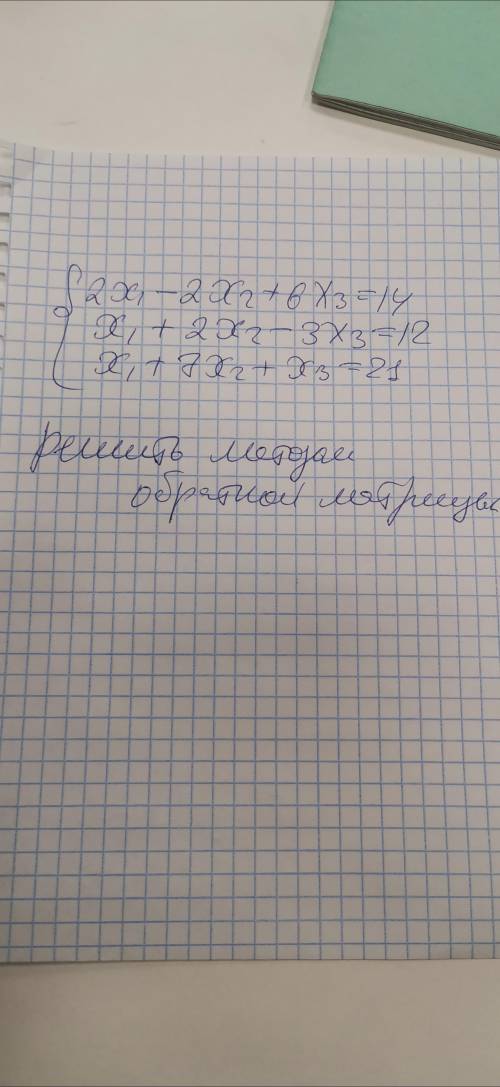 2x₁ - 2x₂ + 6x₃ = 14
x₁ + 2x₂ - 3x₃ = 12
x₁ + 7x₂ + x₃ = 21
решить методом
обратной матрицы